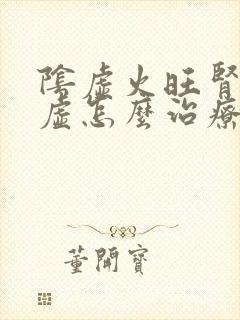 陰虛火旺腎
虛怎麼治療
董開寶